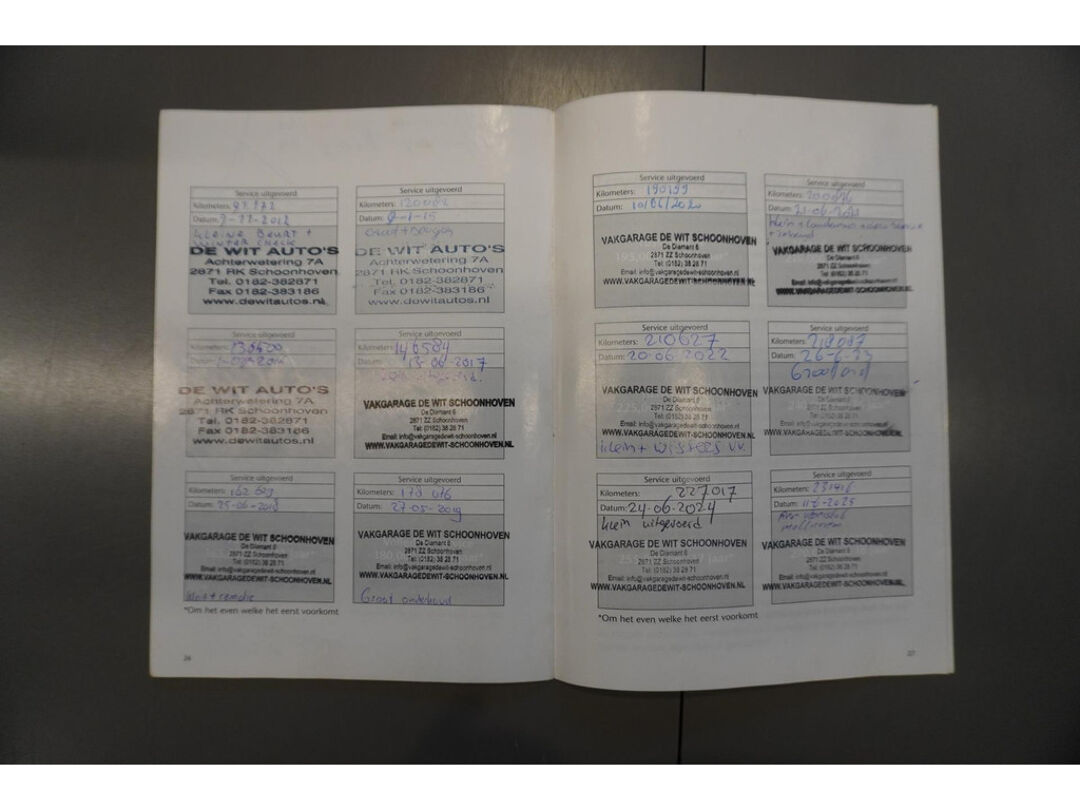 Service uitgevoerd
Kilometers:
Datum: 2012
Kleine Beurt +
Winter check
DE WIT AUTO'S
Achterwetering 7A
2871 RK Schoonhoven
Tel. 0182-382871
Fax 0182-383186
www.dewitautos.nl
Service uitgevoerd
Kilometers:
Datum:
DE WIT AUTO'S
Achterwetering 7A
2871 RK Schoonhoven
Tel. 0182-382871
Fax 0182-383186
www.dewitautos.nl
Service uitgevoerd
DE WIT AUTO'S
Achterwetering 7A
2871 RK Schoonhoven
Tel. 0182-382871
Fax 0182-383186
www.dewitautos.nl
Service uitgevoerd
Kilometers: 146584
Datum: 13-06-2017
VAKGARAGE DE WIT SCHOONHOVEN
De Diamant 6
2871 ZZ Schoonhoven
Tel: (0182) 38 28 71
Email: info@vakgaragedewit-schoonhoven.nl
WWW.VAKGARAGEDEWIT-SCHOONHOVEN.NL
Service uitgevoerd
Kilometers:
Datum: 25-06-2018
VAKGARAGE DE WIT SCHOONHOVEN
De Diamant 6
2871 ZZ Schoonhoven
Tel: (0182) 38 28 71
Email: info@vakgaragedewit-schoonhoven.nl
WWW.VAKGARAGEDEWIT-SCHOONHOVEN.NL
Service uitgevoerd
Kilometers: 178 016
Datum: 27-05-2019
VAKGARAGE DE WIT SCHOONHOVEN
De Diamant 6
2871 ZZ Schoonhoven
Tel: (0182) 38 28 71
Email: info@vakgaragedewit-schoonhoven.nl
WWW.VAKGARAGEDEWIT-SCHOONHOVEN.NL
Groot onderhoud
*Om het even welke het eerst voorkomt
Service uitgevoerd
Kilometers: 190199
Datum: 10/06/2020
VAKGARAGE DE WIT SCHOONHOVEN
De Diamant 6
2871 ZZ Schoonhoven
Tel: (0182) 38 28 71
Email: info@vakgaragedewit-schoonhoven.nl
WWW.VAKGARAGEDEWIT-SCHOONHOVEN.NL
Service uitgevoerd
Kilometers:
Datum: 21-06-2021
VAKGARAGE DE WIT SCHOONHOVEN
De Diamant 6
2871 ZZ Schoonhoven
Tel: (0182) 38 28 71
Email: info@vakgaragedewit-schoonhoven.nl
WWW.VAKGARAGEDEWIT-SCHOONHOVEN.NL
Service uitgevoerd
Kilometers: 210627
Datum: 20-06-2022
VAKGARAGE DE WIT SCHOONHOVEN
De Diamant 6
2871 ZZ Schoonhoven
Tel: (0182) 38 28 71
Email: info@vakgaragedewit-schoonhoven.nl
WWW.VAKGARAGEDEWIT-SCHOONHOVEN.NL
Klein + wissers v.v.
Service uitgevoerd
Kilometers: 218087
Datum: 26-6-23
Groot ond
VAKGARAGE DE WIT SCHOONHOVEN
De Diamant 6
2871 ZZ Schoonhoven
Tel: (0182) 38 28 71
Email: info@vakgaragedewit-schoonhoven.nl
WWW.VAKGARAGEDEWIT-SCHOONHOVEN.NL
Service uitgevoerd
Kilometers: 227017
Datum: 24-06-2024
klein uitgevoerd
VAKGARAGE DE WIT SCHOONHOVEN
De Diamant 6
2871 ZZ Schoonhoven
Tel: (0182) 38 28 71
Email: info@vakgaragedewit-schoonhoven.nl
WWW.VAKGARAGEDEWIT-SCHOONHOVEN.NL
Service uitgevoerd
Kilometers:
Datum: 11-6-2025
VAKGARAGE DE WIT SCHOONHOVEN
De Diamant 6
2871 ZZ Schoonhoven
Tel: (0182) 38 28 71
Email: info@vakgaragedewit-schoonhoven.nl
WWW.VAKGARAGEDEWIT-SCHOONHOVEN.NL
*Om het even welke het eerst voorkomt